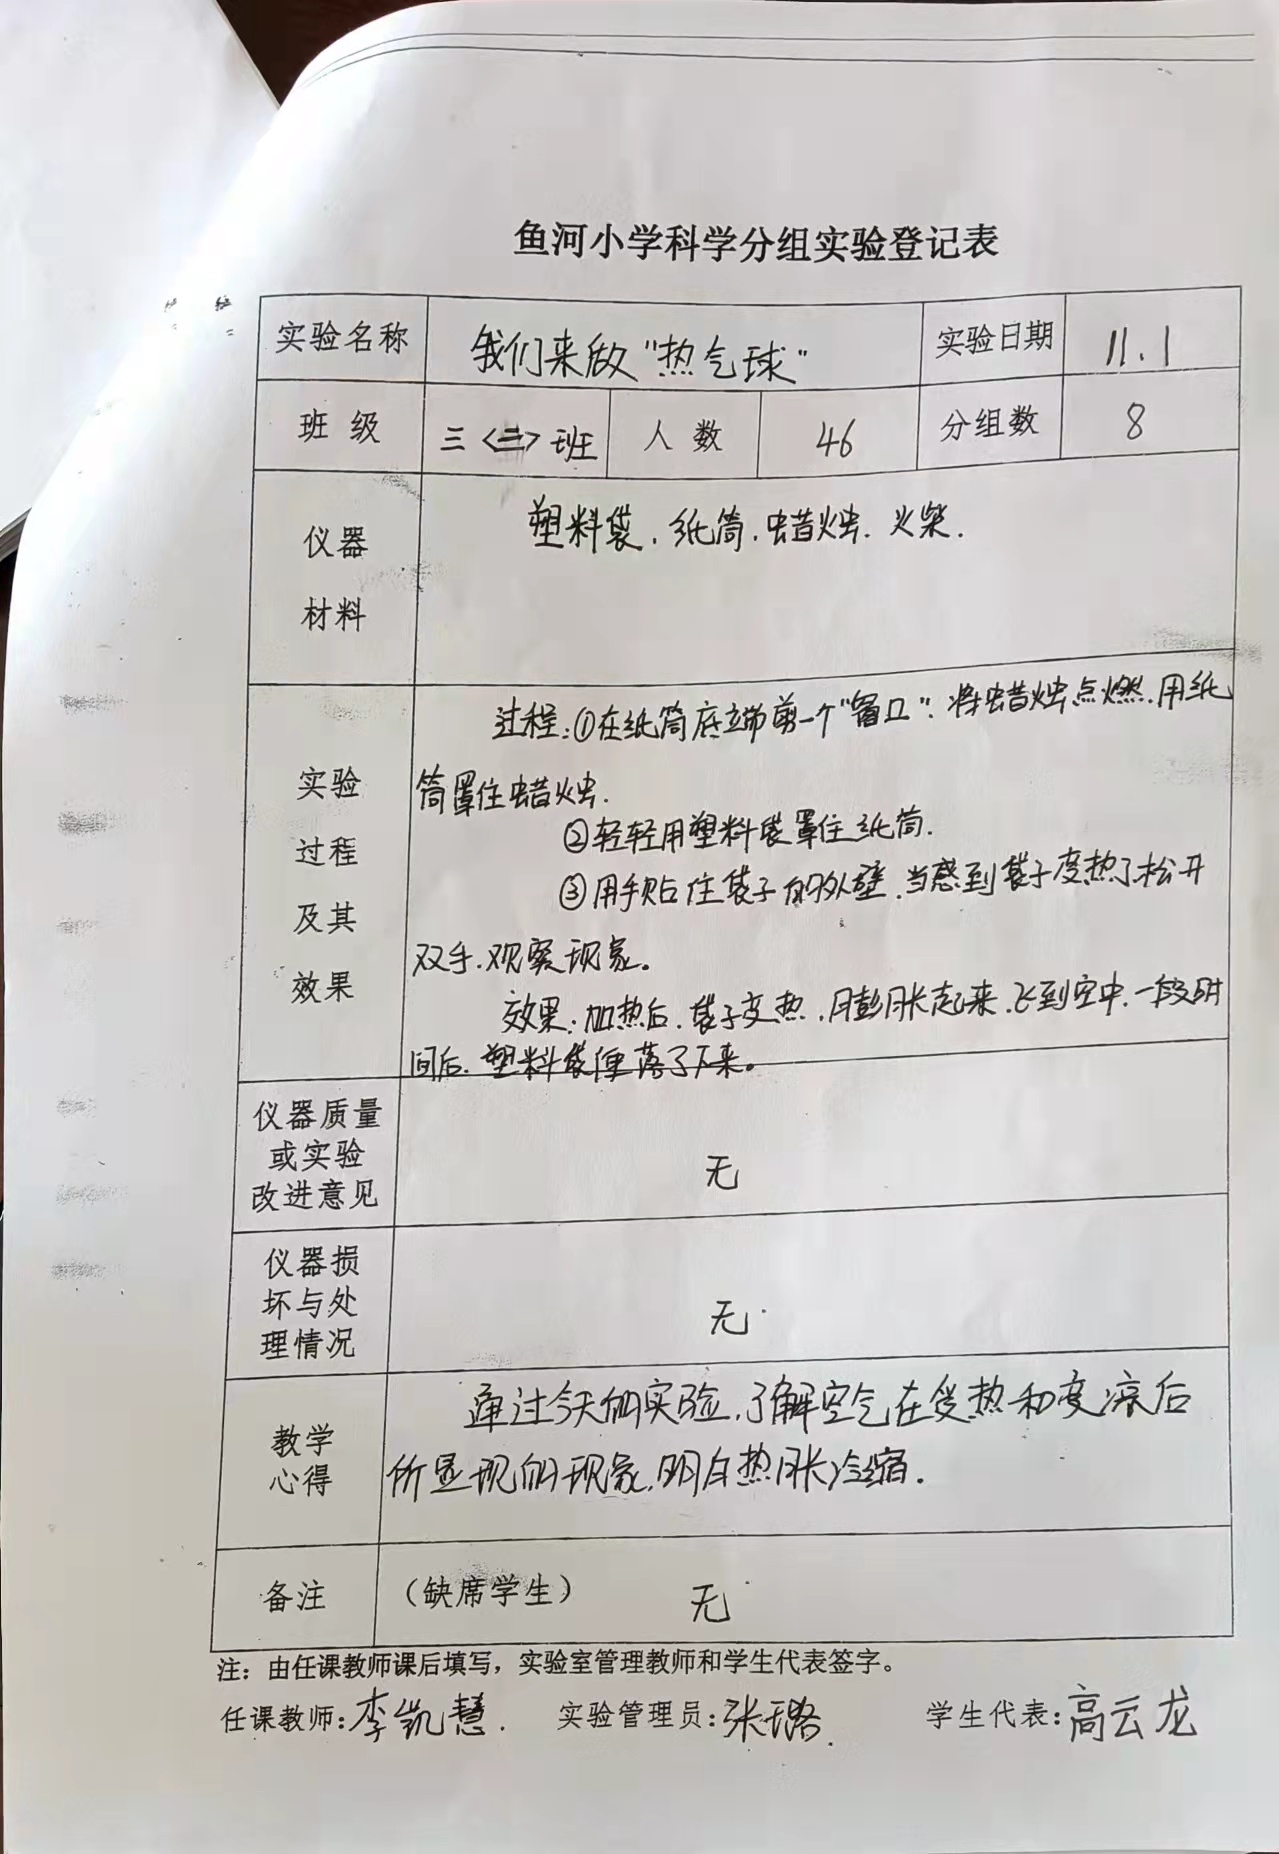 鱼河小学科学分组实验登记表
实验名称 我们来做"热气球" 实验日期 11.1
班 级 三〈二〉班 人 数 46 分组数 8
仪器
材料
塑料袋、纸筒、蜡烛、火柴.
实验
过程
及其
效果
过程:①在纸筒底端剪一个"窗口".将蜡烛点燃.用纸
筒罩住蜡烛.
②轻轻用塑料袋罩住纸筒.
③用手贴住袋子的外壁.当感到袋子变热了松开
双手.观察现象。
效果:加热后.袋子变热.膨胀起来.飞到空中.一段时
间后.塑料袋便落了下来。
仪器质量
或实验
改进意见
无
仪器损
坏与处
理情况
无
教学
心得
通过今天的实验.了解空气在受热和变凉后
所显现的现象.明白热胀冷缩.
备注 (缺席学生) 无
注:由任课教师课后填写,实验室管理教师和学生代表签字。
任课教师:李凯慧. 实验管理员:张璐. 学生代表:高云龙